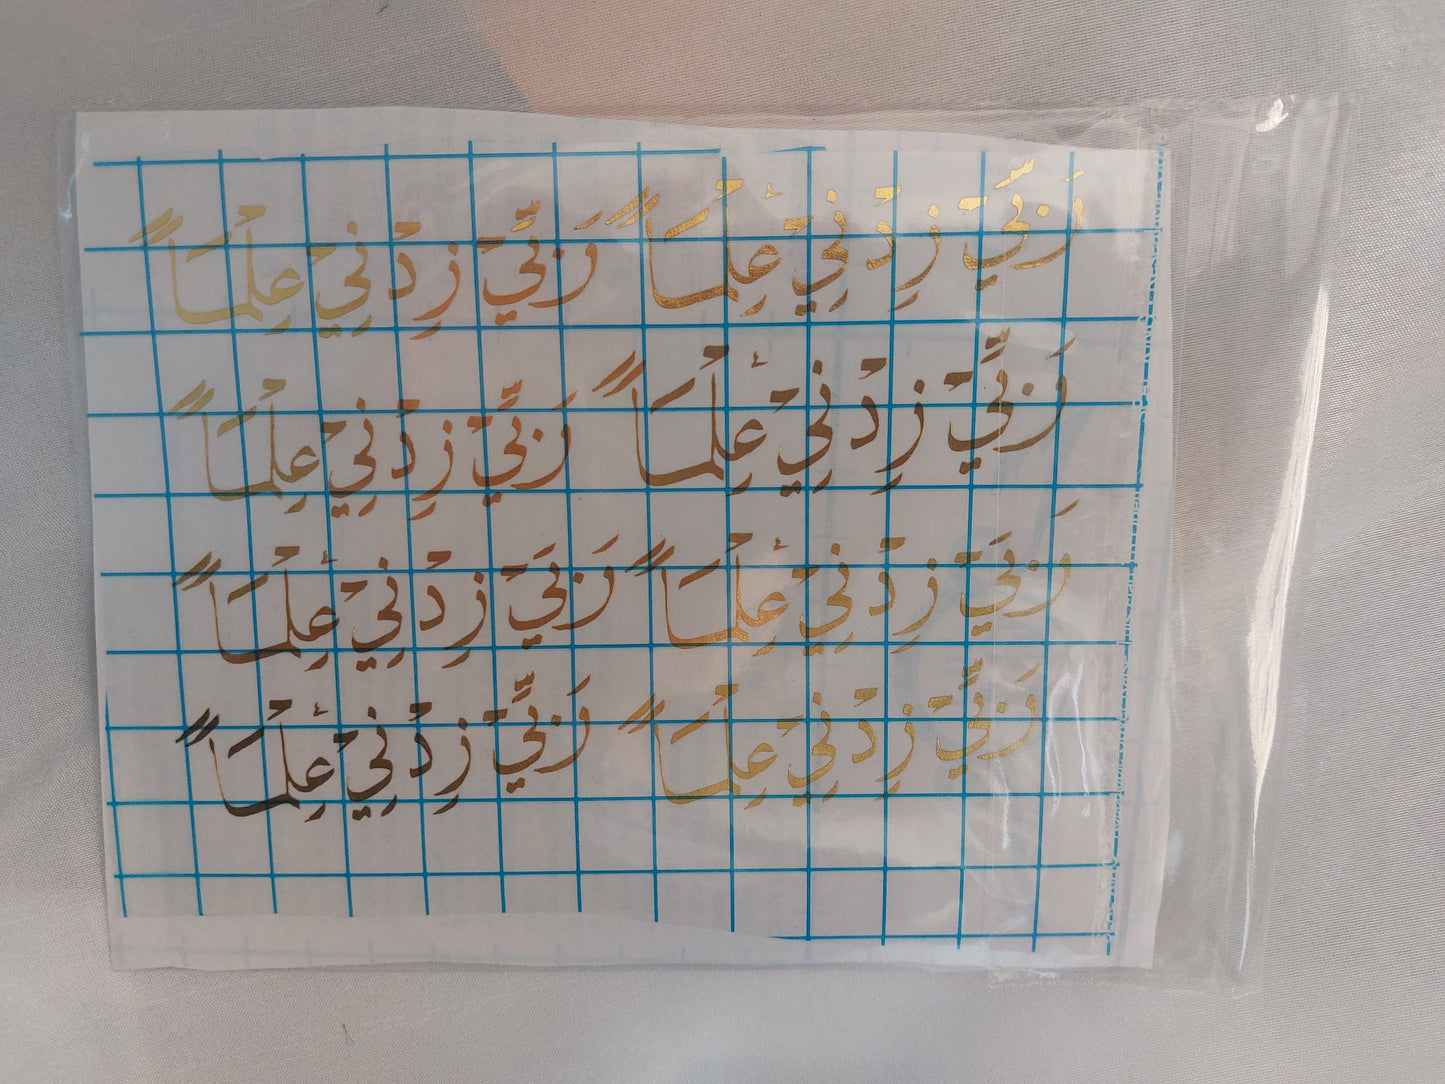 رَبِّيْ زِدْنِيْ عِلْمَاً رَبِّيْ زِدْنِيْ عِلْمَاً
رَبِّيْ زِدْنِيْ عِلْمَاً رَبِّيْ زِدْنِيْ عِلْمَاً
رَبِّيْ زِدْنِيْ عِلْمَاً رَبِّيْ زِدْنِيْ عِلْمَاً
رَبِّيْ زِدْنِيْ عِلْمَاً رَبِّيْ زِدْنِيْ عِلْمَاً